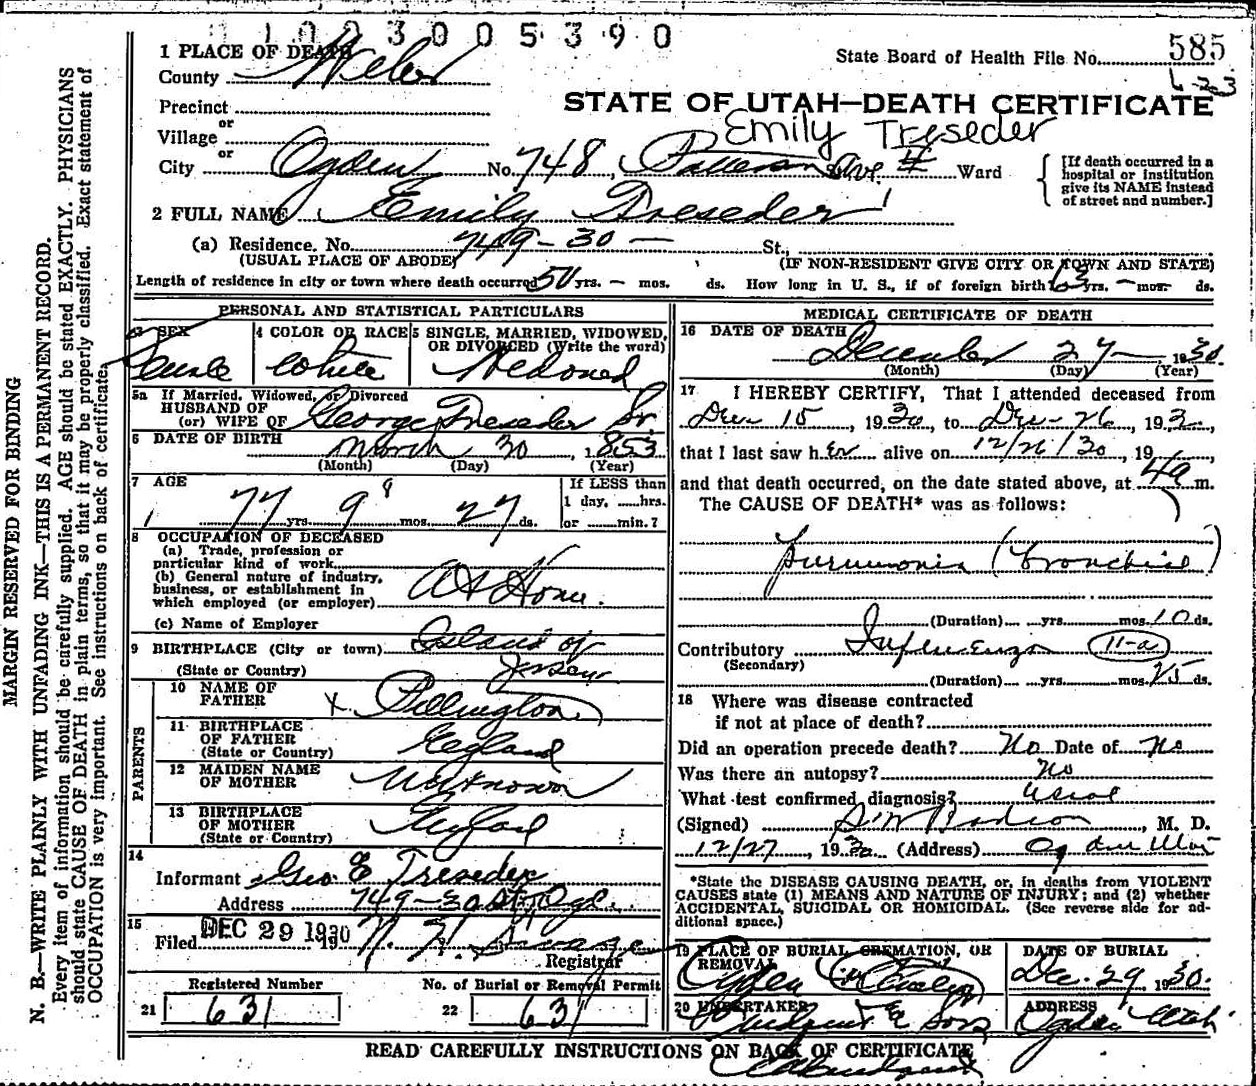 1 1 0 2 3 0 0 5 3 9 0
1 PLACE OF DEATH
State Board of Health File No. 585
County Weber
6-23
Precinct
STATE OF UTAH—DEATH CERTIFICATE
or
Emily Treseder
Village
or
City Ogden No. 748, Patterson Ave. 4 Ward
[If death occurred in a
hospital or institution
give its NAME instead
of street and number.]
2 FULL NAME Emily Treseder
(a) Residence. No. 749-30- St.,
(USUAL PLACE OF ABODE)
(IF NON-RESIDENT GIVE CITY OR TOWN AND STATE)
Length of residence in city or town where death occurred 50 yrs. - mos. ds. How long in U. S., if of foreign birth 63 yrs. - mos. ds.
PERSONAL AND STATISTICAL PARTICULARS
3 SEX
Female
4 COLOR OR RACE
White
5 SINGLE, MARRIED, WIDOWED,
OR DIVORCED (Write the word)
Widowed
5a If Married, Widowed, or Divorced
HUSBAND OF
(or) WIFE OF George Treseder Sr.
6 DATE OF BIRTH
March 30, 1853
(Month) (Day) (Year)
7 AGE
77 yrs. 9 8 mos. 27 ds.
If LESS than
1 day, hrs.
or min.?
8 OCCUPATION OF DECEASED
(a) Trade, profession or
particular kind of work
(b) General nature of industry,
business, or establishment in
which employed (or employer)
At Home.
(c) Name of Employer
9 BIRTHPLACE (City or town) Island of
(State or Country) Jersey
PARENTS
10 NAME OF
FATHER X Pillington
11 BIRTHPLACE
OF FATHER
(State or Country) England
12 MAIDEN NAME
OF MOTHER Not Known
13 BIRTHPLACE
OF MOTHER
(State or Country) England
14
Informant Geo E Treseder
Address 749-30 St Ogd.
15
Filed DEC 29 1930
Registrar
Registered Number
21 631
No. of Burial or Removal Permit
22 631
MEDICAL CERTIFICATE OF DEATH
16 DATE OF DEATH
December 27 1930
(Month) (Day) (Year)
17 I HEREBY CERTIFY, That I attended deceased from
Dec 15, 1930, to Dec- 26, 193
that I last saw her alive on 12/26/30, 19
and that death occurred, on the date stated above, at 4a m.
The CAUSE OF DEATH* was as follows:
Pneumonia (bronchial)
(Duration) yrs. mos. 10 ds.
Contributory Influenza 11-a
(Secondary)
(Duration) yrs. mos. 15 ds.
18 Where was disease contracted
if not at place of death?
Did an operation precede death? No Date of No
Was there an autopsy? No
What test confirmed diagnosis? Usual
(Signed) M. D.
12/27, 1930 (Address) Ogden Utah
*State the DISEASE CAUSING DEATH, or, in deaths from VIOLENT
CAUSES state (1) MEANS AND NATURE OF INJURY; and (2) whether
ACCIDENTAL, SUICIDAL OR HOMICIDAL. (See reverse side for ad-
ditional space.)
19 PLACE OF BURIAL CREMATION, OR
REMOVAL
Ogden City Cemetery
DATE OF BURIAL
Dec. 29 1930.
20 UNDERTAKER
& Sons
ADDRESS
Ogden Utah
READ CAREFULLY INSTRUCTIONS ON BACK OF CERTIFICATE
MARGIN RESERVED FOR BINDING
N. B.—WRITE PLAINLY WITH UNFADING INK—THIS IS A PERMANENT RECORD.
Every item of information should be carefully supplied. AGE should be stated EXACTLY. PHYSICIANS
should state CAUSE OF DEATH in plain terms, so that it may be properly classified. Exact statement of
OCCUPATION is very important. See instructions on back of certificate.